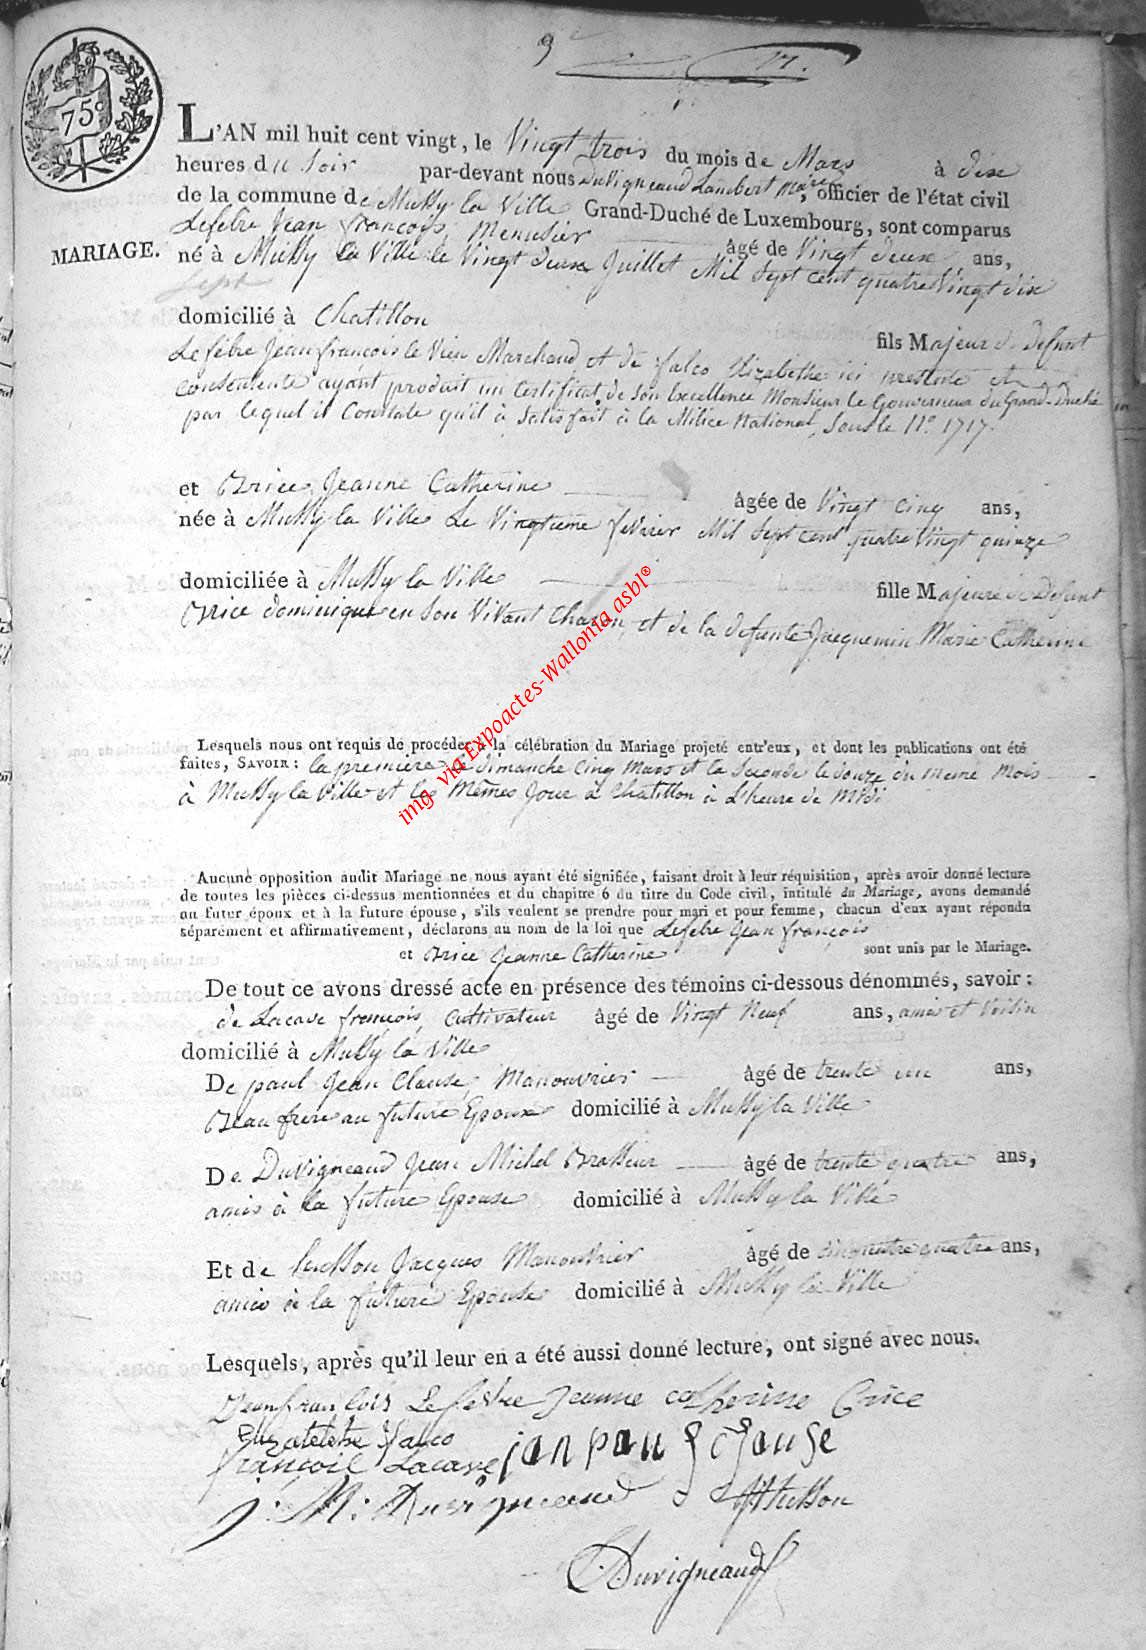 9e
75c
L'AN mil huit cent vingt, le Vingt trois du mois de Mars à dix
heures du Soir par-devant nous Duvigneaud Lambert Maire, officier de l'état civil
de la commune de Mussy la Ville Grand-Duché de Luxembourg, sont comparus
Lefebre Jean François, Menusier âgé de Vingt deux ans,
MARIAGE.
né à Mussy la Ville le Vingt deux Juillet Mil Sept cent quatre Vingt dix
Sept
domicilié à Chatillon fils Majeur de Defunt
Lefebre Jean françois le Vieu Marchand et de falco Elizabethe ici presente et
consentente ayant produit un certificat de Son Excellence Monsieur le Gouverneur du Grand-Duché
par lequel il Constate qu'il à Satisfait à la Milice National, Sous le No 1717.
et Brice, Jeanne Catherine âgée de Vingt Cinq ans,
née à Mussy la Ville Le Vingtieme fevrier Mil Sept cent quatre Vingt quinze
domiciliée à Mussy la Ville fille Majeure de Defunt
Brice dominique en Son Vivant Charon, et de la defunte Jacquemin Marie Catherine
img via Expoactes-Wallonia asbl®
Lesquels nous ont requis de procéder à la célébration du Mariage projeté entr'eux, et dont les publications ont été
faites, SAVOIR: la premiere le dimanche Cinq Mars et la Seconde le douze du meme Mois
à Mussy la Ville et les Mêmes Jour à Chatillon à L'heure de Midi
Aucune opposition audit Mariage ne nous ayant été signifiée, faisant droit à leur réquisition, après avoir donné lecture
de toutes les pièces ci-dessus mentionnées et du chapitre 6 du titre du Code civil, intitulé du Mariage, avons demandé
au futur époux et à la future épouse, s'ils veulent se prendre pour mari et pour femme, chacun d'eux ayant répondu
séparément et affirmativement, déclarons au nom de la loi que Lefebre Jean françois
et Brice Jeanne Catherine sont unis par le Mariage.
De tout ce avons dressé acte en présence des témoins ci-dessous dénommés, savoir:
de Lacave françois, Cultivateur âgé de Vingt Neuf ans, amis et Voisin
domicilié à Mussy la Ville
De paul Jean Clause, Manouvrier âgé de trente un ans,
Beau frere au future Epoux domicilié à Mussy la Ville
De Duvigneaud Jean Michel Brasseur âgé de trente quatre ans,
amis à la future Epouse domicilié à Mussy la Ville
Et de husson Jacques Manouvrier âgé de cinquante quatre ans,
amis à la future Epouse domicilié à Mussy la Ville
Lesquels, après qu'il leur en a été aussi donné lecture, ont signé avec nous.
Jean franlois Lefebre Jeanne catherine Brice
Elizatebthe falco
françoil Lacave jan pau clause
J: M: Duvigneaud J husson
L. Duvigneaud